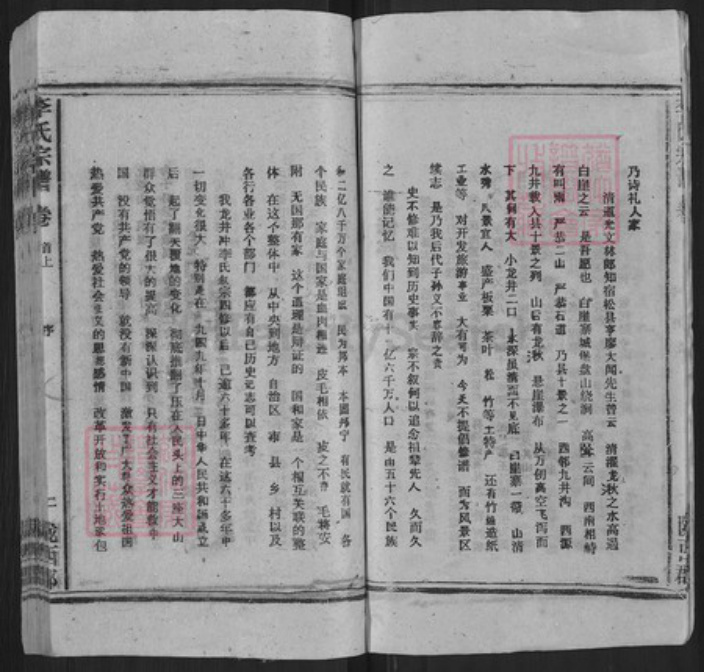 乃诗礼人家
清道光文林郎知宿松县事廖大闻先生曾云 清濯龙秋之水高遏
白崖之云 是吾愿也 白崖寨城堡盘山绕涧 高耸云间 西南相峙
有叫雨 严恭二山 严恭石道 乃县十景之一 西邻九井沟 西源
九井载入县十景之列 山后有龙湫 悬崖瀑布 从万仞高空飞泻而
下 其响有大 小龙井二口 水深虽清而不见底 白崖寨一带 山清
水秀 风景宜人 盛产板栗 茶叶 松 竹等土特产 还有竹编造纸
工业等 对开发旅游事业 大有可为 今天不提倡修谱 而为风景区
续志 是乃我后代子孙义不容辞之责
史不修难以知到历史事实 宗不叙何以追念祖辈先人 久而久
之 谁能记忆 我们中国有十 亿六千万人口 是由五十六个民族
和二亿八千万个家庭组成 民为邦本 本固邦宁 有民就有国 各
个民族 家庭与国家是血肉相连 皮毛相依 皮之不存 毛将安
附 无国那有家 这个道理是辩证的 国和家是一个相互关联的整
体 在这个整体中 从中央到地方 自治区 市 县 乡 村以及
各行各业各个部门 都应有自己历史记志可以查考
我龙井冲李氏叙宗四修以后 已逾六十多年 在这六十多年中
一切变化很大 特别是在一九四九年十月一日中华人民共和国成立
后 起了翻天覆地的变化 彻底推翻了压在人民头上的三座大山
群众觉悟有了很大的提高 深深认识到 只有社会主义才能救中
国 没有共产党的领导 就没有新中国 激发了广大群众热爱祖国
热爱共产党 热爱社会主义的思想感情 改革开放和实行土地承包
李氏宗谱 卷
首上
序
二
陇西郡